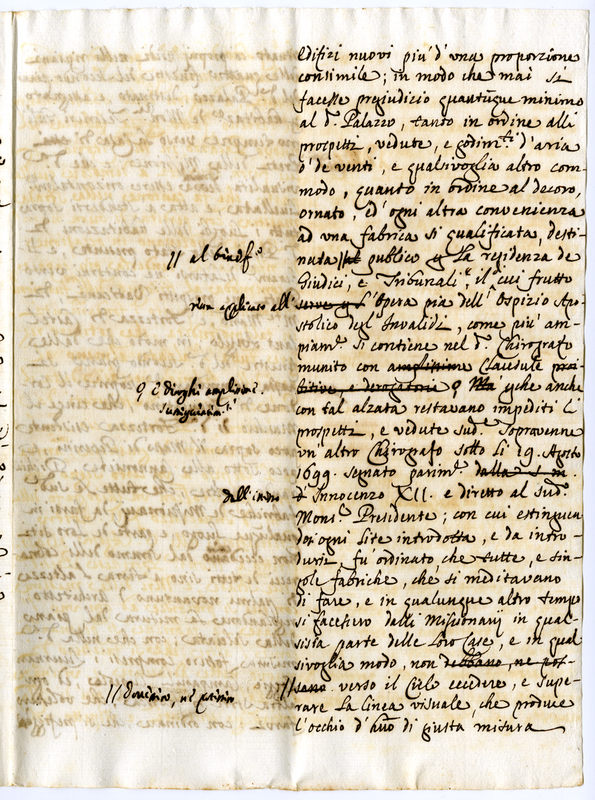 Edifizi nuovi più d'una proporzione
consimile; in modo che mai si
facesse pregiudicio quantunque minimo
al d.º Palazzo, tanto in ordine alli
prospetti, vedute, e godim.ti d'aria
ò de venti, e qualsivoglia altro com-
modo, quanto in ordine al decoro,
ornato, ed'ogni altra convenienza
ad una fabrica sì qualificata, desti-
nata // al publico p La residenza de
// al
Giudici, e Tribunali, il cui frutto
vien applicato all'
serve p L'Opera pia dell'Ospizio Apo-
stolico degl'Invalidi, come più am-
piam.e si contiene nel d.º Chirografo
munito con amplissime Clausule proi-
bitive, e derogatorie Ma p che anche
con tal alzata restavano impediti li
prospetti, e vedute sud.e Sopravenne
un altro Chirografo sotto li 19. Agosto
1699. segnato parim.e dalla s. m.
dall'istesso
d'Innocenzo XII. e diretto al sud.º
Mons.r Presidente; con cui estinguen-
dosi ogni Lite introdotta, e da intro-
dursi, fu ordinato che tutte, e sin-
gole fabriche, che si meditavano
di fare, e in qualunque altro tempo
si facessero dalli Missionarij in qual-
sisia parte delle Loro Case, e in qual-
sivoglia modo, non debbano, ne pos-
sano verso il Cielo eccedere, e supe-
// dovessero, nè potessero
rare La linea visuale, che produce
l'occhio d'huomo di giusta misura